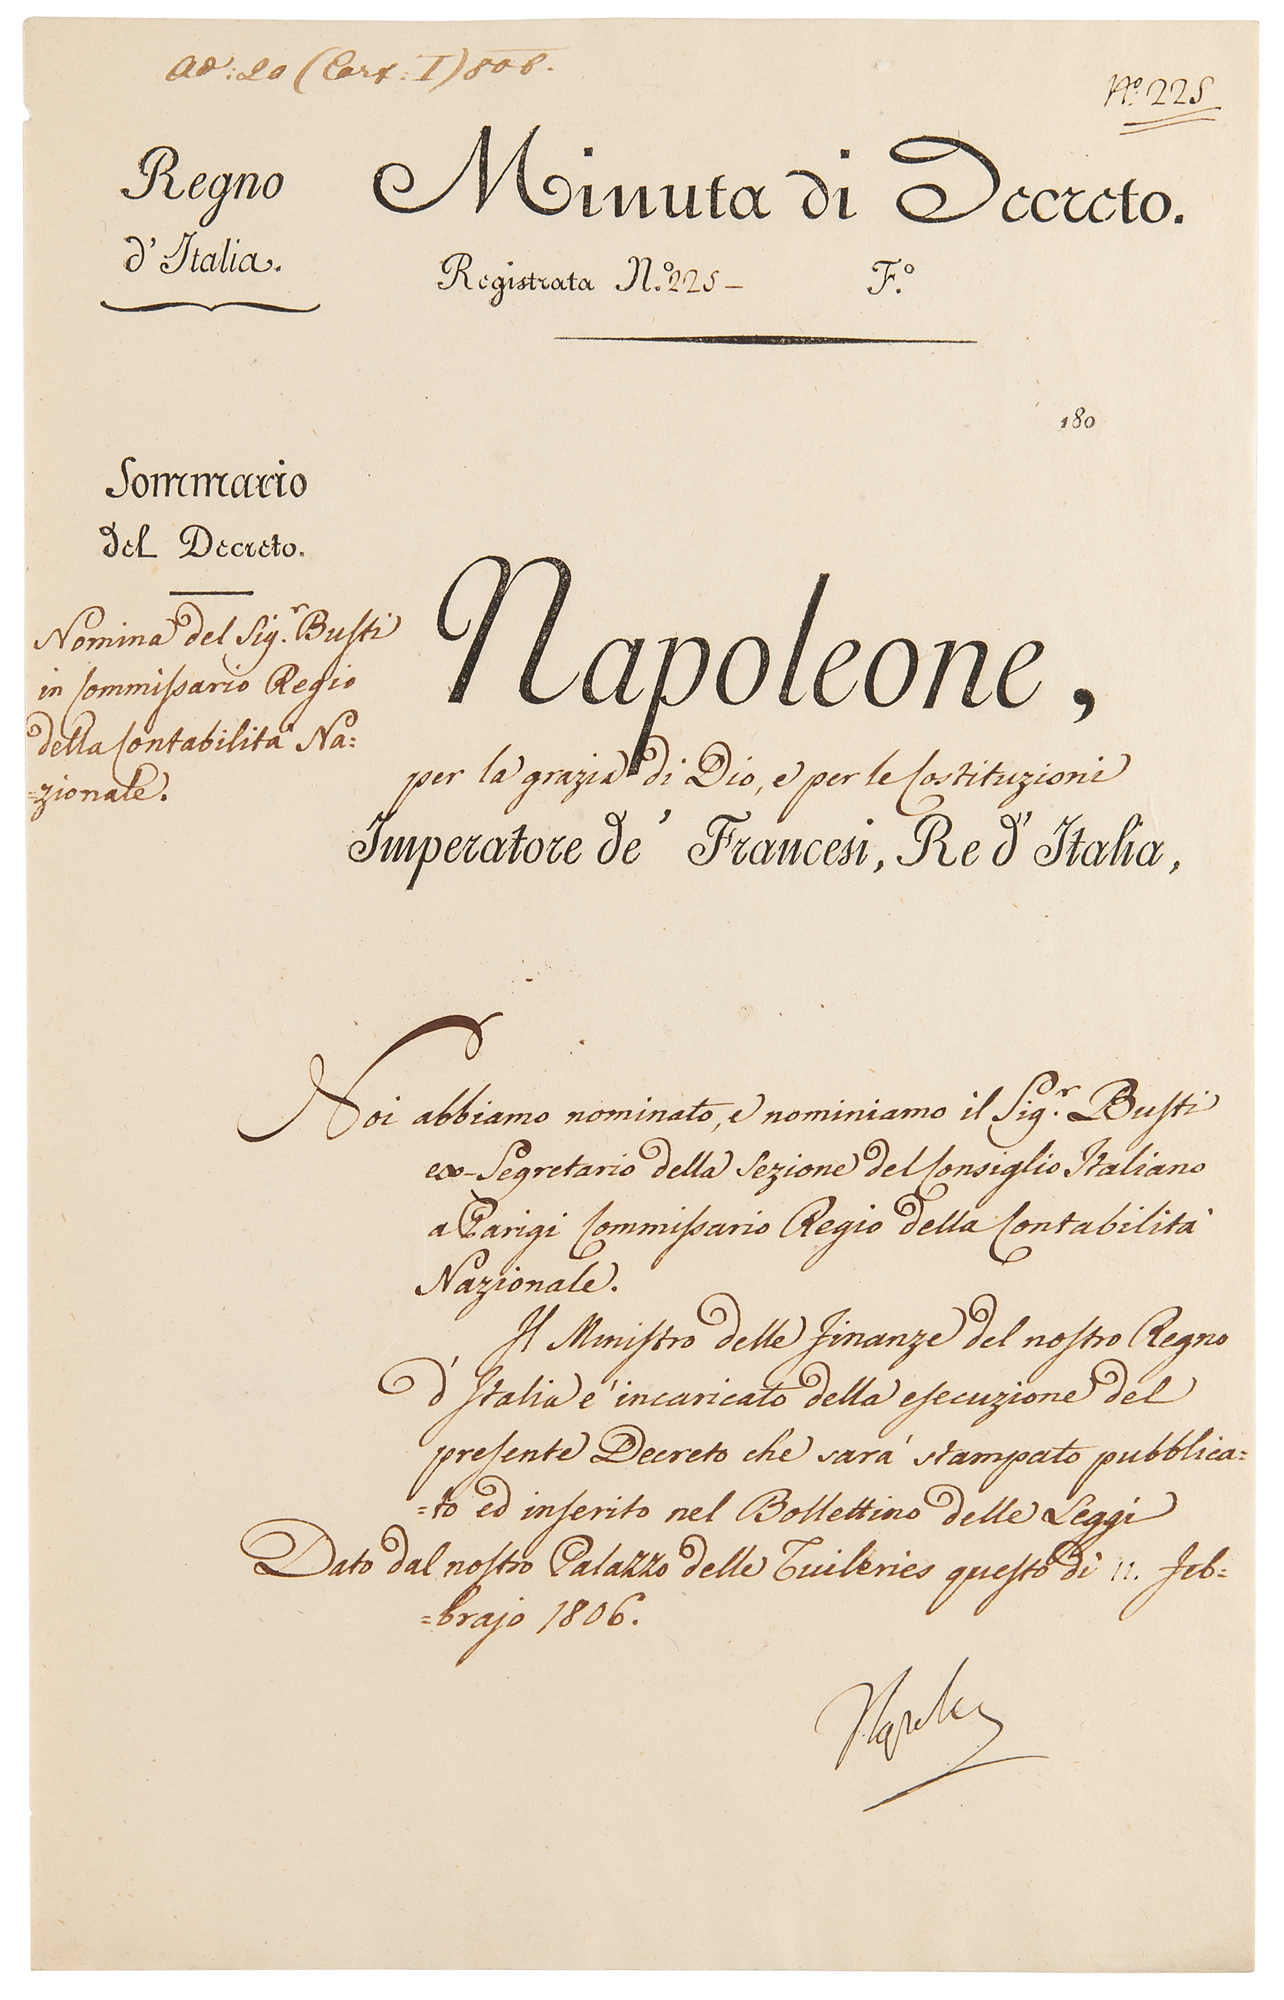 Ad: 20 (Cart: I) 806.
Nº. 225
Regno
d'Italia.
Minuta di Decreto.
Registrata N.º 225 – F.º
180
Sommario
del Decreto.
Nomina del Sig.r Busti
in Commissario Regio
della Contabilità Na=
=zionale.
Napoleone,
per la grazia di Dio, e per le Costituzioni
Imperatore de' Francesi, Re d'Italia,
Noi abbiamo nominato, e nominiamo il Sig.r Busti
ex-Segretario della Sezione del Consiglio Italiano
a Parigi Commissario Regio della Contabilità
Nazionale.
Il Ministro delle Finanze del nostro Regno
d'Italia e' incaricato della esecuzione del
presente Decreto che sarà stampato pubblica=
=to ed inserito nel Bollettino delle Leggi
Dato dal nostro Palazzo delle Tuileries questo dì 11. Feb=
=brajo 1806.